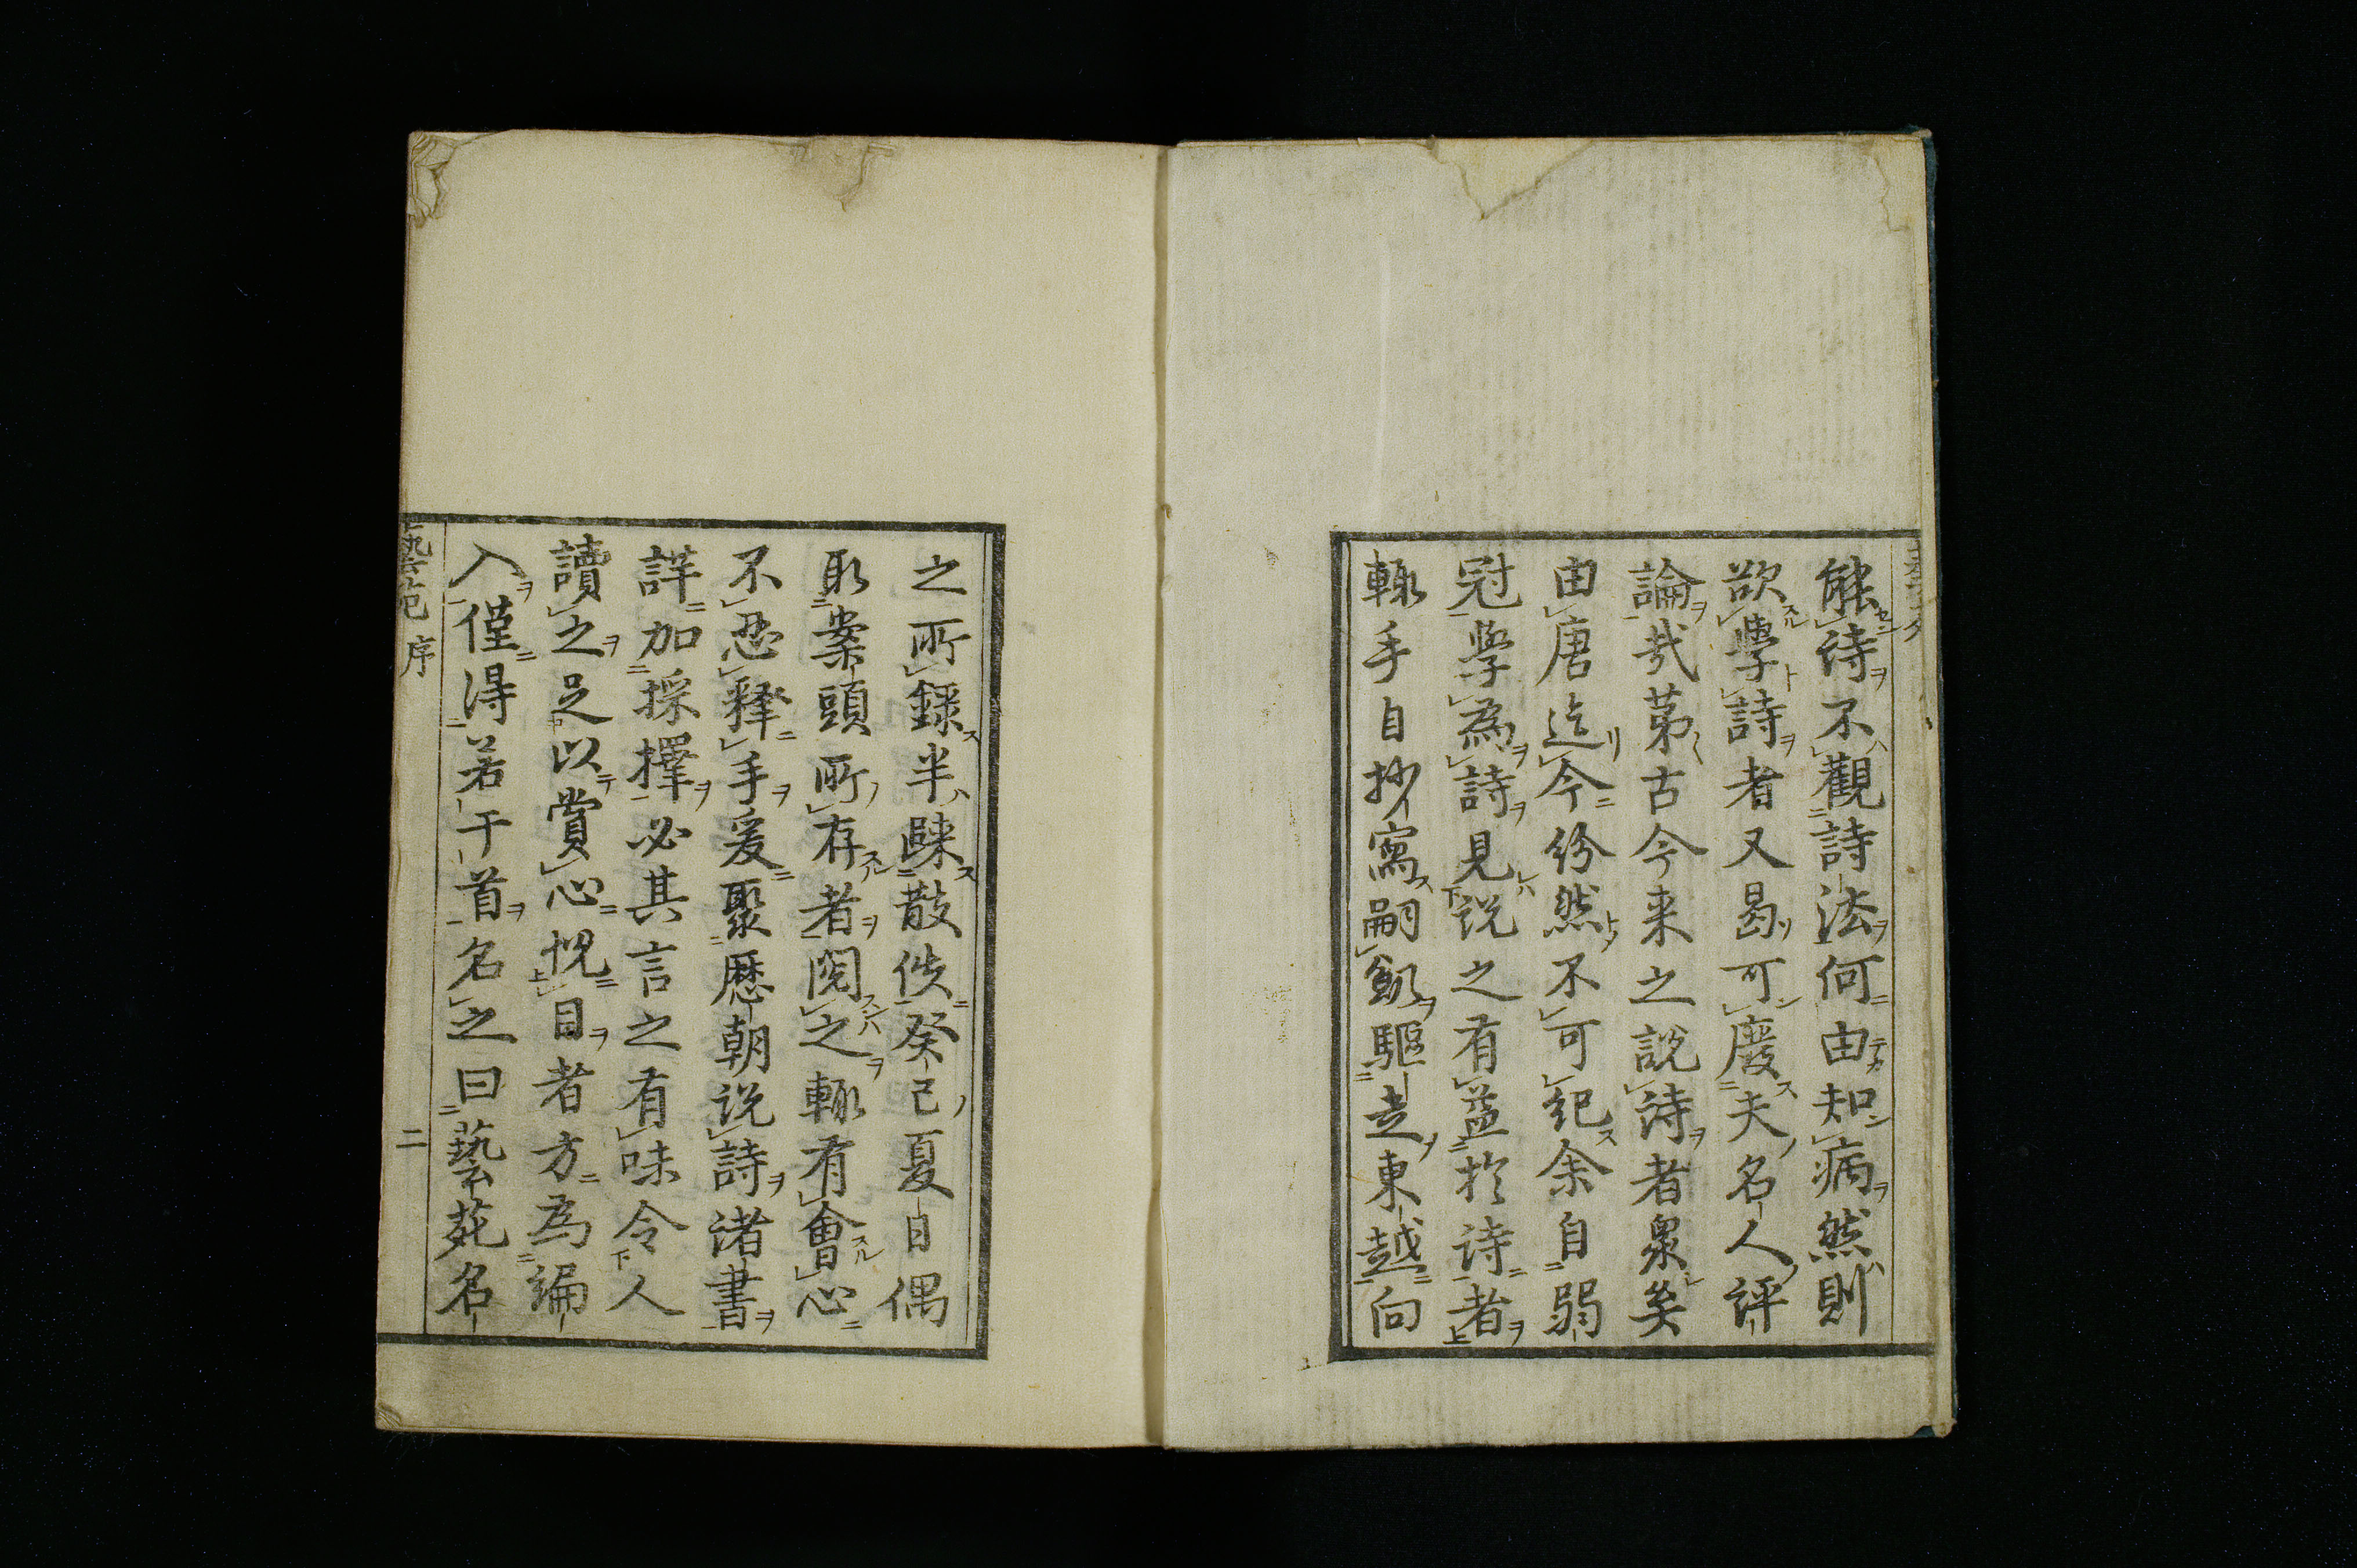 能詩不觀詩法何由知病然則
欲學詩者又曷可廢夫名人評
論哉苐古今来之説詩者衆矣
由唐迄今紛然不可紀余自弱
冠學為詩見説之有益於詩者
輙手自抄寫嗣飢驅走東越向
之所錄半歸散佚癸己夏自偶
取案頭所存者閱之輙有會心
不忍釋手爰聚歷朝説詩諸書
詳加採擇必其言之有味令人
讀之足以賞心悦目者方為編
入僅得若干首名之曰藝苑名
藝苑 序
二